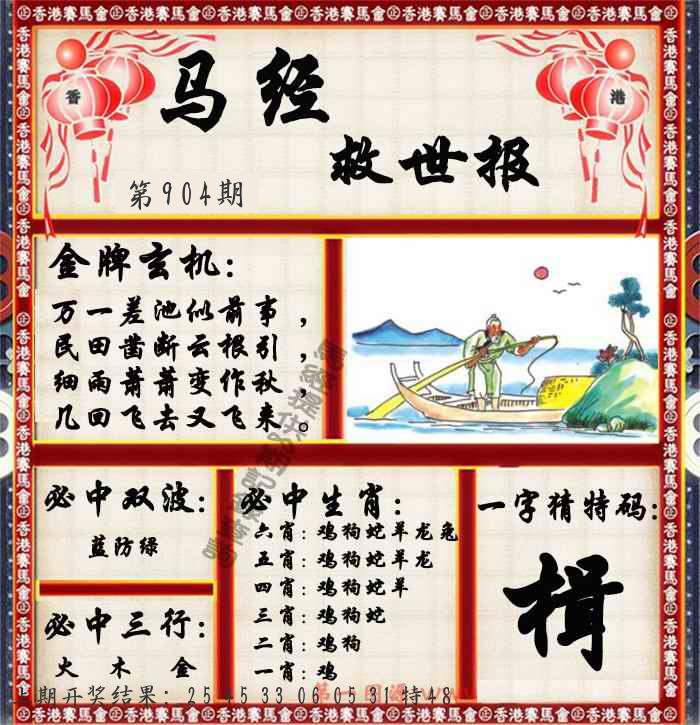 香港賽馬會
香 港
马经
救世报
第904期
金牌玄机:
万一差池似前事，
民田凿断云根引，
细雨萧萧变作秋，
几回飞去又飞来。
必中双波:
蓝防绿
必中三行:
火 木 金
必中生肖:
六肖:鸡狗蛇羊龙兔
五肖:鸡狗蛇羊龙
四肖:鸡狗蛇羊
三肖:鸡狗蛇
二肖:鸡狗
一肖:鸡
一字猜特码:
揖
期开奖结果: 25 45 33 06 05 31特48
第一图源